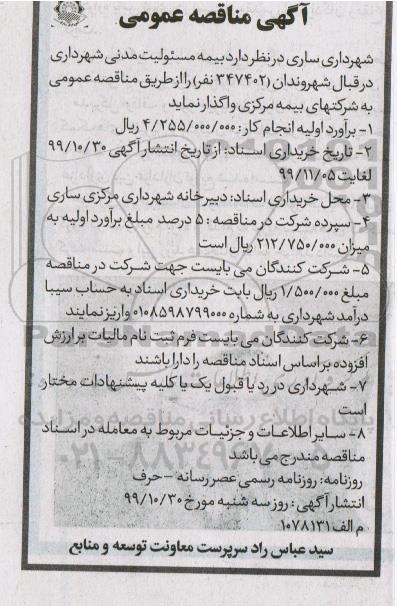 آگهی مناقصه عمومی
شهرداری ساری در نظر دارد بیمه مسئولیت مدنی شهرداری
در قبال شهروندان (۳۴۷۴۰۲ نفر) را از طریق مناقصه عمومی
به شرکتهای بیمه مرکزی واگذار نماید
۱- برآورد اولیه انجام کار : ۴/۲۵۵/۰۰۰/۰۰۰ ریال
۲- تاریخ خریداری اسناد: از تاریخ انتشار آگهی ۹۹/۱۰/۳۰
لغایت ۹۹/۱۱/۰۵
۳- محل خریداری اسناد: دبیرخانه شهرداری مرکزی ساری
۴- سپرده شرکت در مناقصه : ۵ درصد مبلغ برآورد اولیه به
میزان ۲۱۲/۷۵۰/۰۰۰ ریال است
۵- شرکت کنندگان می بایست جهت شرکت در مناقصه
مبلغ ۱/۵۰۰/۰۰۰ ریال بابت خریداری اسناد به حساب سیبا
درآمد شهرداری به شماره ۰۱۰۸۵۹۸۷۹۹۰۰۰ واریز نمایند
۶- شرکت کنندگان می بایست فرم ثبت نام مالیات بر ارزش
افزوده بر اساس اسناد مناقصه را دارا باشند
۷- شهرداری در رد یا قبول یک یا کلیه پیشنهادات مختار
است
۸- سایر اطلاعات و جزئیات مربوط به معامله در اسناد
مناقصه مندرج می باشد
روزنامه: روزنامه رسمی عصر رسانه - حرف
انتشار آگهی : روز سه شنبه مورخ ۹۹/۱۰/۳۰
م الف ۱۰۷۸۱۳۱
سید عباس راد سرپرست معاونت توسعه و منابع